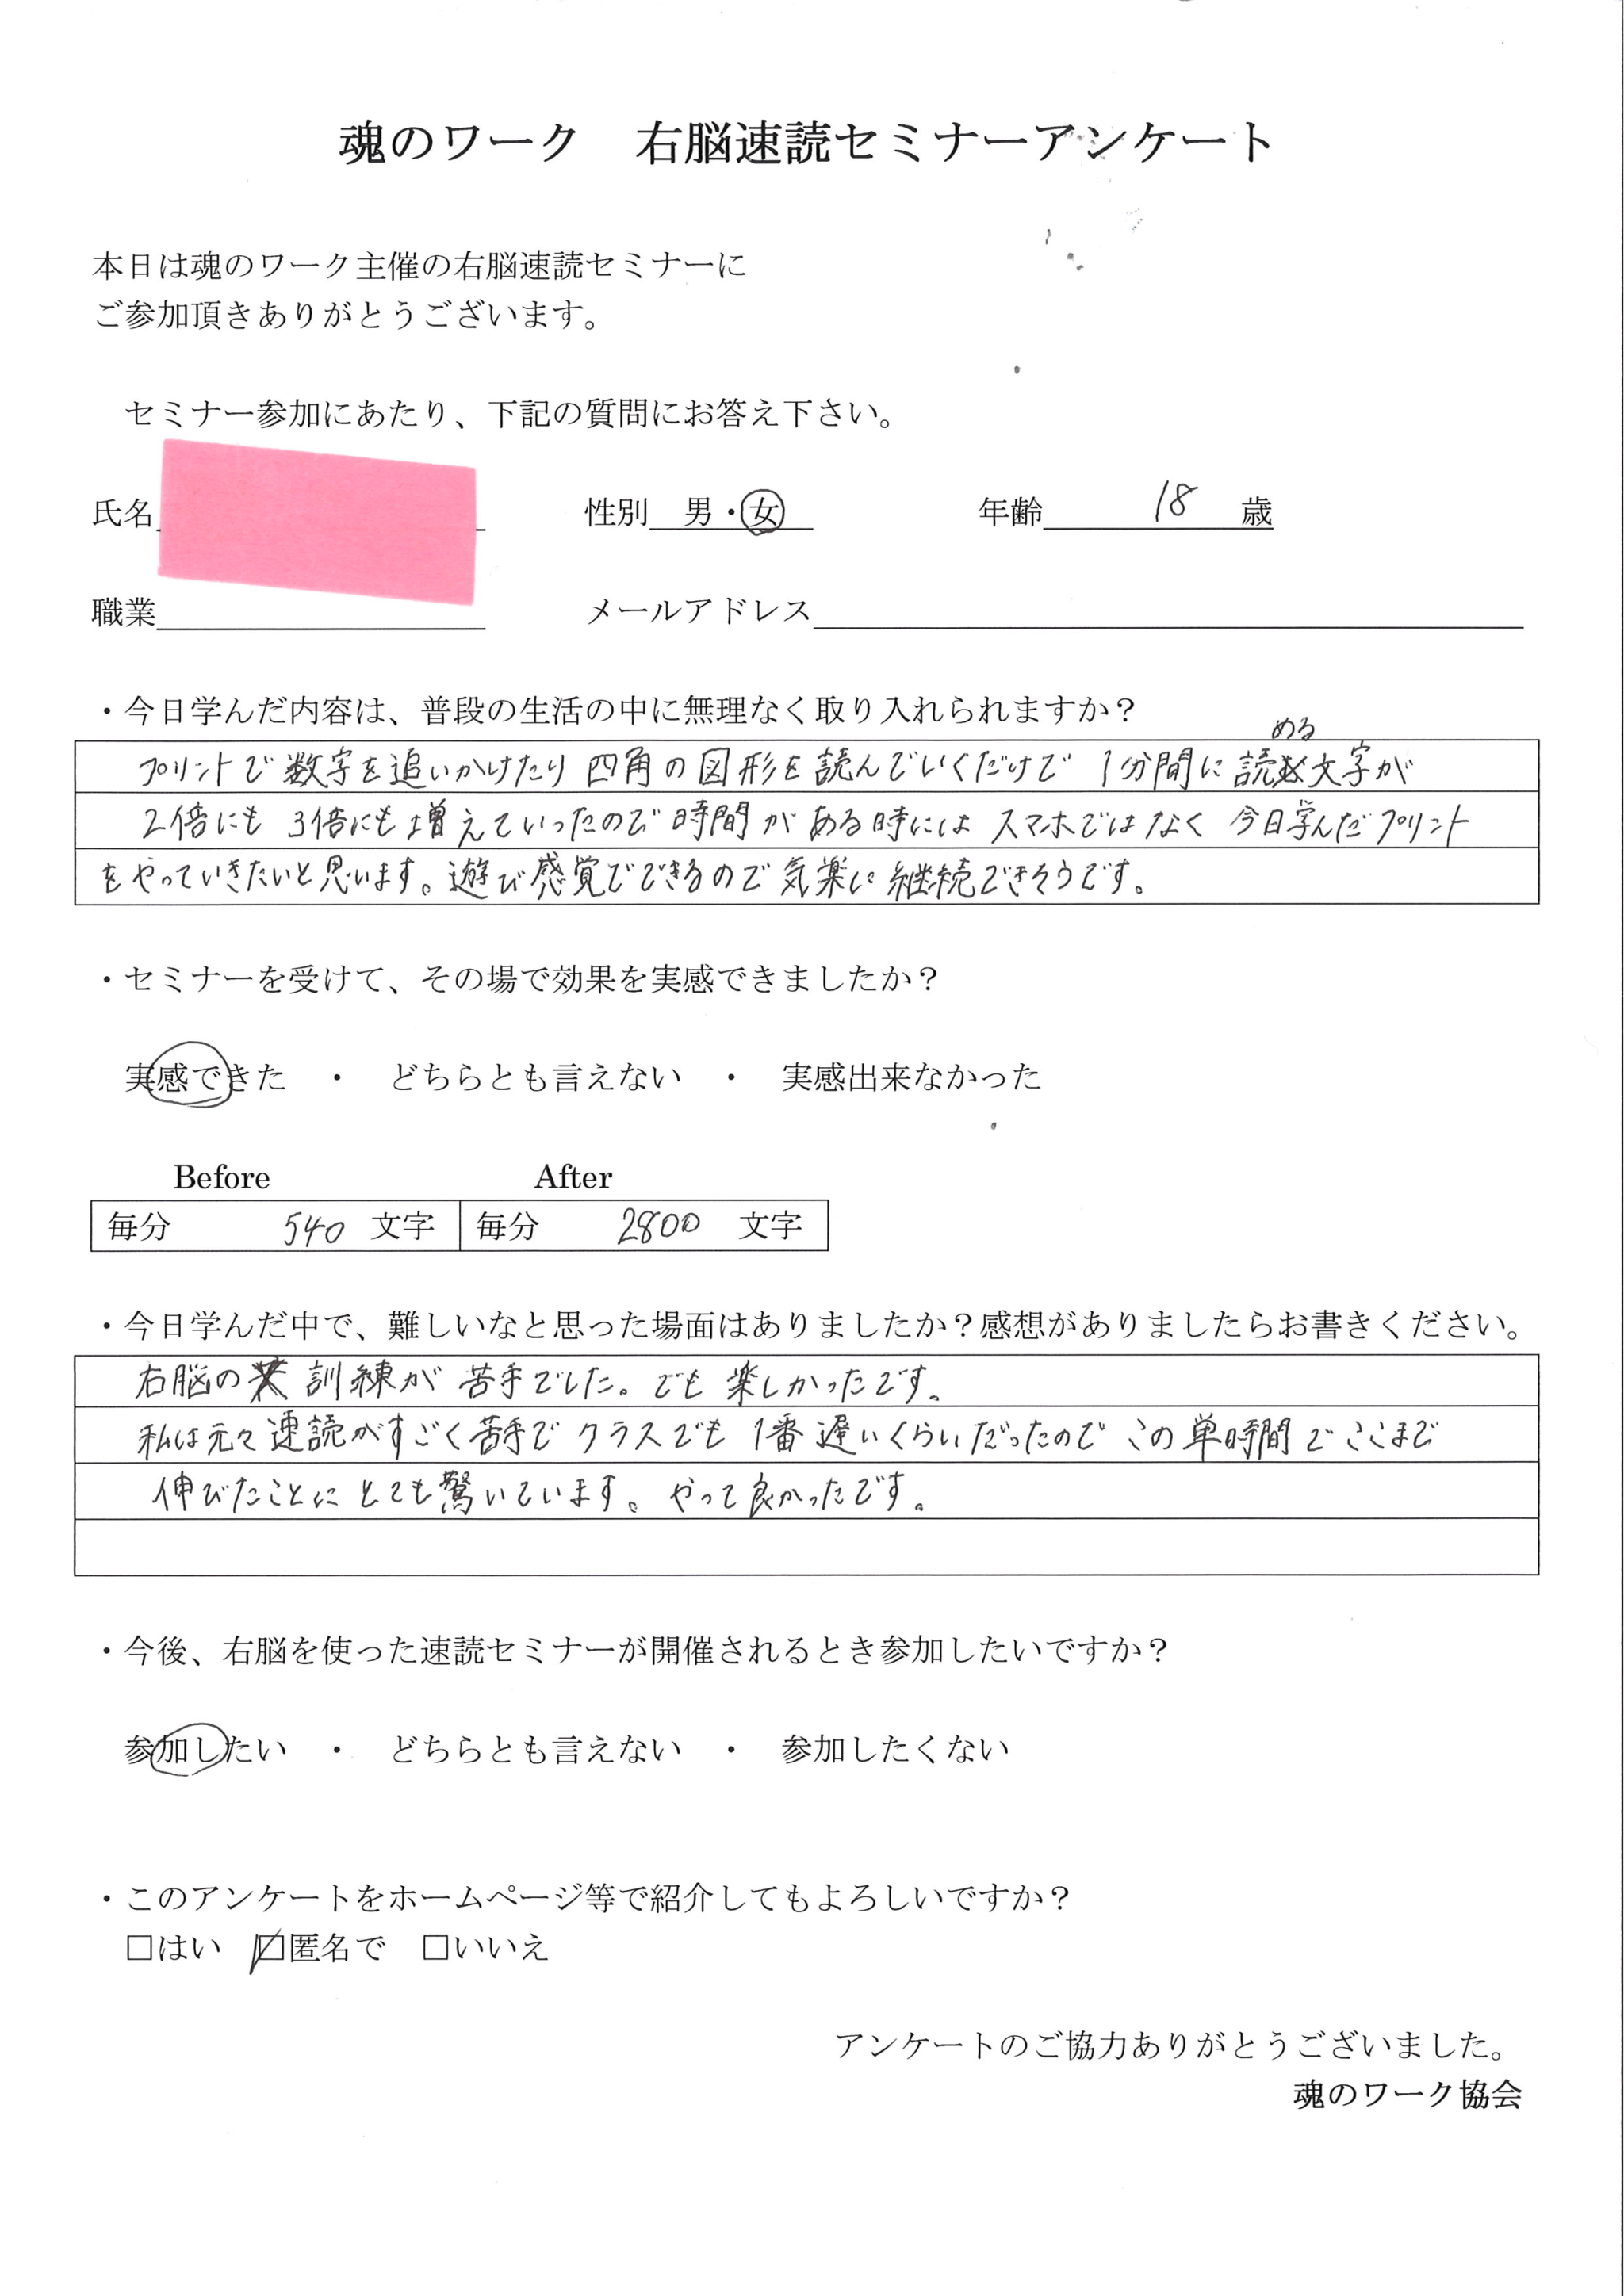 魂のワーク 右脳速読セミナーアンケート
本日は魂のワーク主催の右脳速読セミナーに
ご参加頂きありがとうございます。
セミナー参加にあたり、下記の質問にお答え下さい。
氏名 性別 男・女 年齢 18 歳
職業 メールアドレス
・今日学んだ内容は、普段の生活の中に無理なく取り入れられますか？
プリントで数字を追いかけたり四角の図形を読んでいくだけで1分間に読める文字が
2倍にも3倍にも増えていったので時間がある時にはスマホではなく今日学んだプリント
をやっていきたいと思います。遊び感覚でできるので気楽に継続できそうです。
・セミナーを受けて、その場で効果を実感できましたか？
実感できた ・ どちらとも言えない ・ 実感出来なかった
Before After
毎分 540 文字 毎分 2800 文字
・今日学んだ中で、難しいなと思った場面はありましたか？感想がありましたらお書きください。
右脳の訓練が苦手でした。でも楽しかったです。
私は元々速読がすごく苦手でクラスでも1番遅いくらいだったのでこの単時間でここまで
伸びたことにとても驚いています。やって良かったです。
・今後、右脳を使った速読セミナーが開催されるとき参加したいですか？
参加したい ・ どちらとも言えない ・ 参加したくない
・このアンケートをホームページ等で紹介してもよろしいですか？
□はい ☑匿名で □いいえ
アンケートのご協力ありがとうございました。
魂のワーク協会